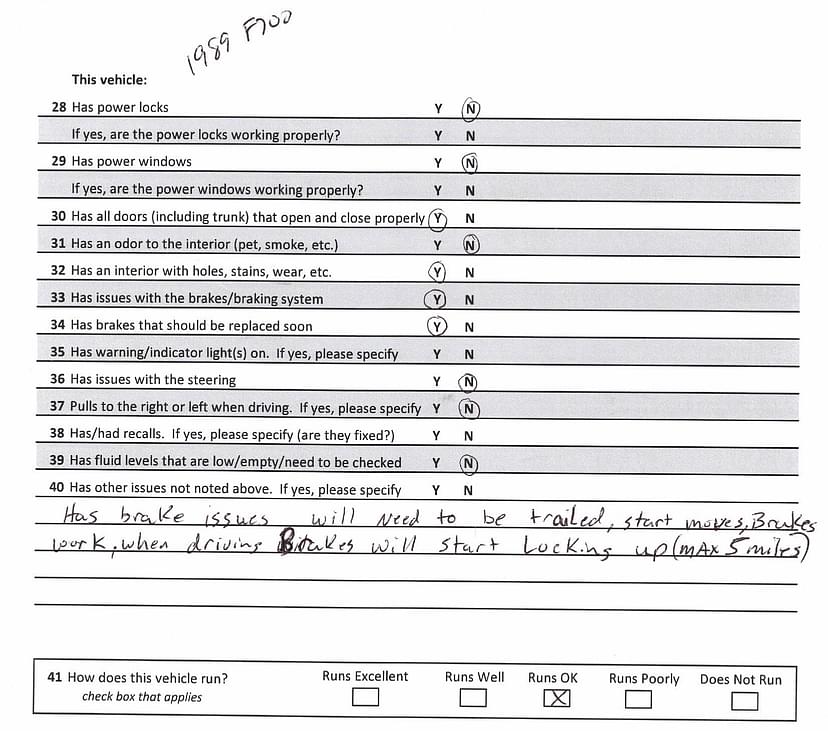 1989 F700
This vehicle:
28 Has power locks Y N
If yes, are the power locks working properly? Y N
29 Has power windows Y N
If yes, are the power windows working properly? Y N
30 Has all doors (including trunk) that open and close properly Y N
31 Has an odor to the interior (pet, smoke, etc.) Y N
32 Has an interior with holes, stains, wear, etc. Y N
33 Has issues with the brakes/braking system Y N
34 Has brakes that should be replaced soon Y N
35 Has warning/indicator light(s) on. If yes, please specify Y N
36 Has issues with the steering Y N
37 Pulls to the right or left when driving. If yes, please specify Y N
38 Has/had recalls. If yes, please specify (are they fixed?) Y N
39 Has fluid levels that are low/empty/need to be checked Y N
40 Has other issues not noted above. If yes, please specify Y N
Has brake issues will Need to be trailed, start moves, Brakes
work, when driving Brakes will start Locking up (mAx 5 miles)
41 How does this vehicle run? Runs Excellent Runs Well Runs OK Runs Poorly Does Not Run
check box that applies